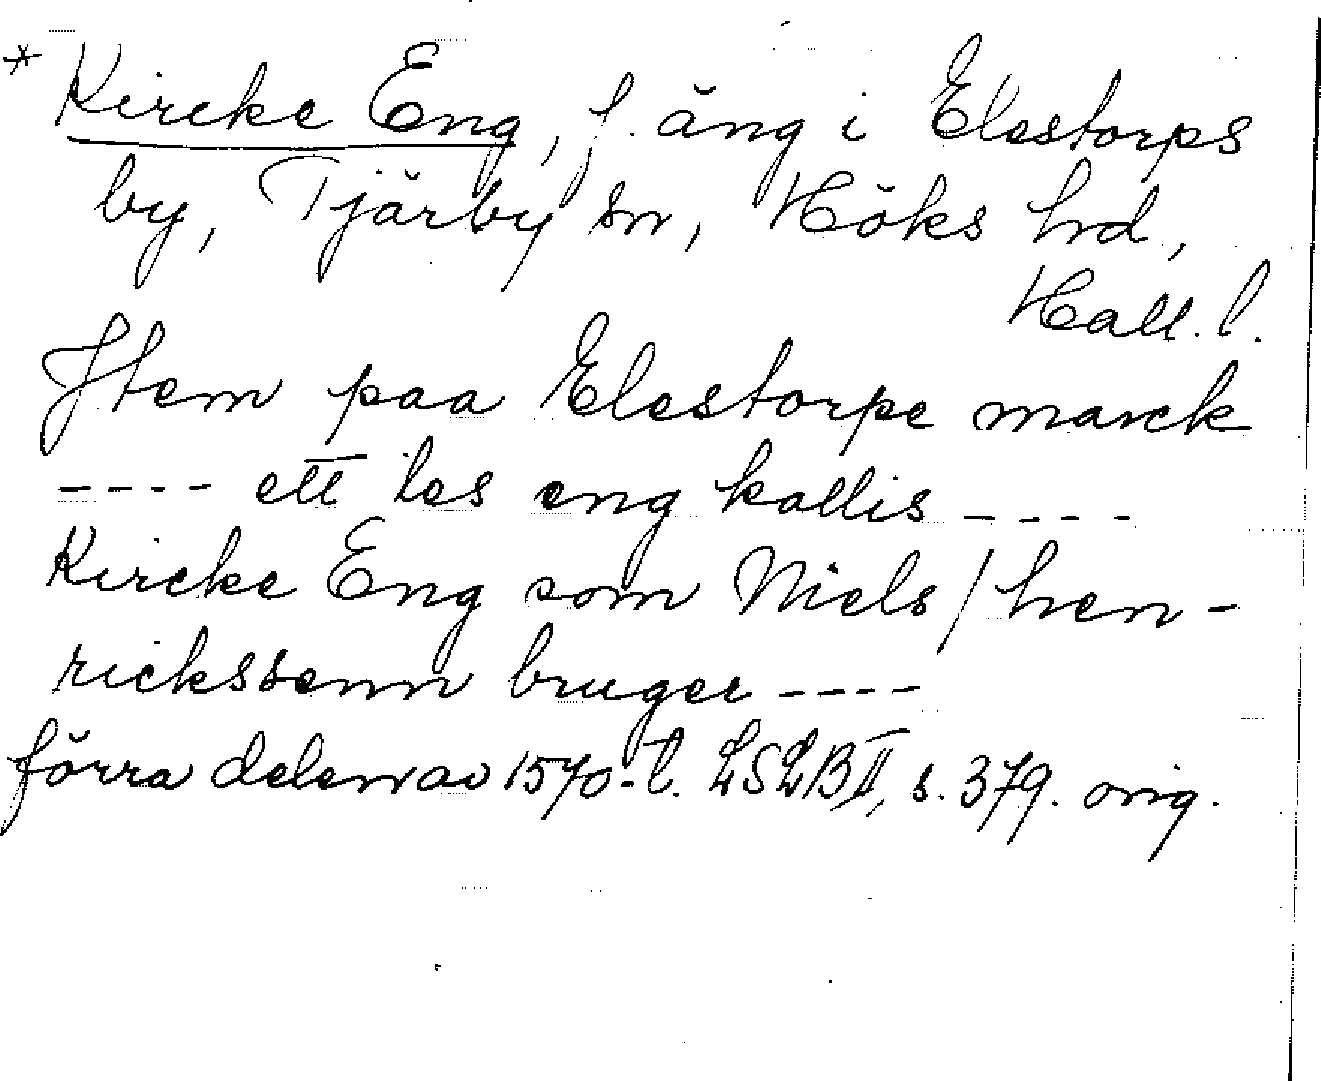 * Kircke Eng, f. äng i Elestorps
by, Tjärby sn, Höks hrd,
Hall. l.
Jtem paa Elestorpe marck
---- ett les eng kallis ----
Kircke Eng som Niels / hen-
rickssenn bruger ----
förra delen av 1570-t. LSLB II, s. 379. orig.